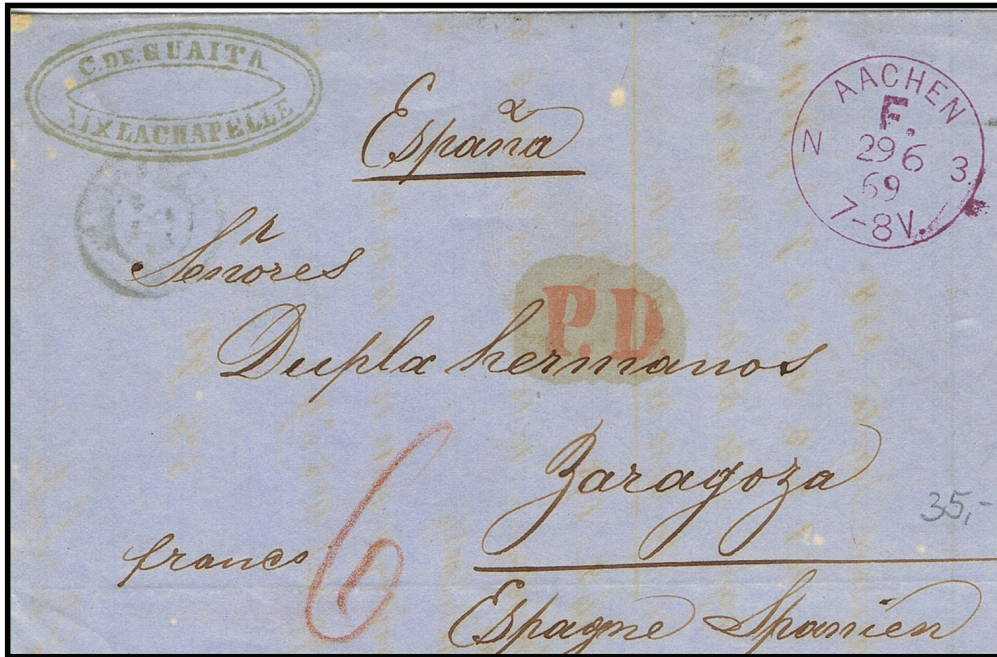 C. DE. GUAITA
AIX LACHAPELLE
España
AACHEN
F.
N 29 6 3.
69
7-8V.
Señores
P.D.
Dupla hermanos
Zaragoza
35,-
franco 6
Espagne Spanien